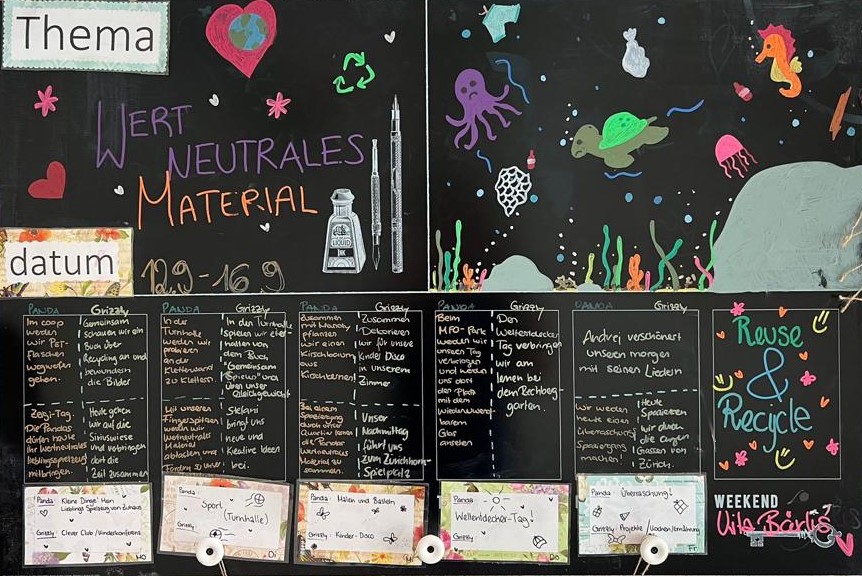 Thema
WERT
NEUTRALES
MATERIAL
LIQUID
INK
datum
12.9-16.9
PANDA Grizzly
Im coop
werden
wir PET-
Flaschen
wegwerfen
gehen.
Gemeinsam
schauen wir ein
Buch über
Recycling an und
bewundern
die Bilder
Zeigi-Tag.
Die Pandas
dürfen heute
ihr wertneutrales
lieblingsspielzeug
mitbringen.
Heute gehen
wir auf die
Siriuswiese
und verbringen
dort die
Zeit zusammen
PANDA Grizzly
In der
Turnhalle
werden wir
probieren
an der
Kletterwand
zu Klettern.
In den Turnhalle
spielen wir
von
dem Buch
"Gemeinsam
Spielen" und
üben unser
Gleichgewicht
Mit unseren
Fingerspitzen
werden wir
Wertneutrales
Material
abtasten und
Stefani
bringt uns
neue und
Kreative Ideen
bei.
PANDA Grizzly
Zusammen
mit Mandy
pflanzen
wir einen
Kirschbaum
aus
Kirschkernen!
Zusammen
Dekorieren
wir für unsere
Kinder Disco
in unserem
Zimmer
Bei einem
Spaziergang
durch unser
Quartier
die Pandas
Wertneutrales
Material zu
sammen.
Unser
Nachmittag
führt uns
zum Zürichhorn-
Spielplatz
PANDA Grizzly
Beim
MFO-Park
werden wir
unseren Tag
verbringen
und werden
uns dort
den Platz
mit dem
Wiederverwert-
barem
Glas
ansehen
Den
Weltentdecker
Tag verbringen
wir am
lernen bei
dem Rechberg-
garten.
PANDA Grizzly
Andrej verschönert
unseren morgen
mit seinen Liedern
Wir werden
heute einen
Überraschungs
Spaziergang
machen!
Heute
Spazieren
wir durch
die engen
Gassen von
Zürich.
Reuse
&
Recycle
Panda: Kleine Dinge' Hain
Lieblings Spielzeug von Zuhaus
Grizzly: Clever Club / Kinderkonferenz
Mo
Panda:
Sport
(Turnhalle)
Grizzly:
Di
Panda: Malen und Basteln
Grizzly: Kinder-Disco
Panda:
Weltentdecker-Tag!
Grizzly:
Do
Panda: Überraschung!
Grizzly: Projekte / Kochen/Ernährung
Fr
WEEKEND